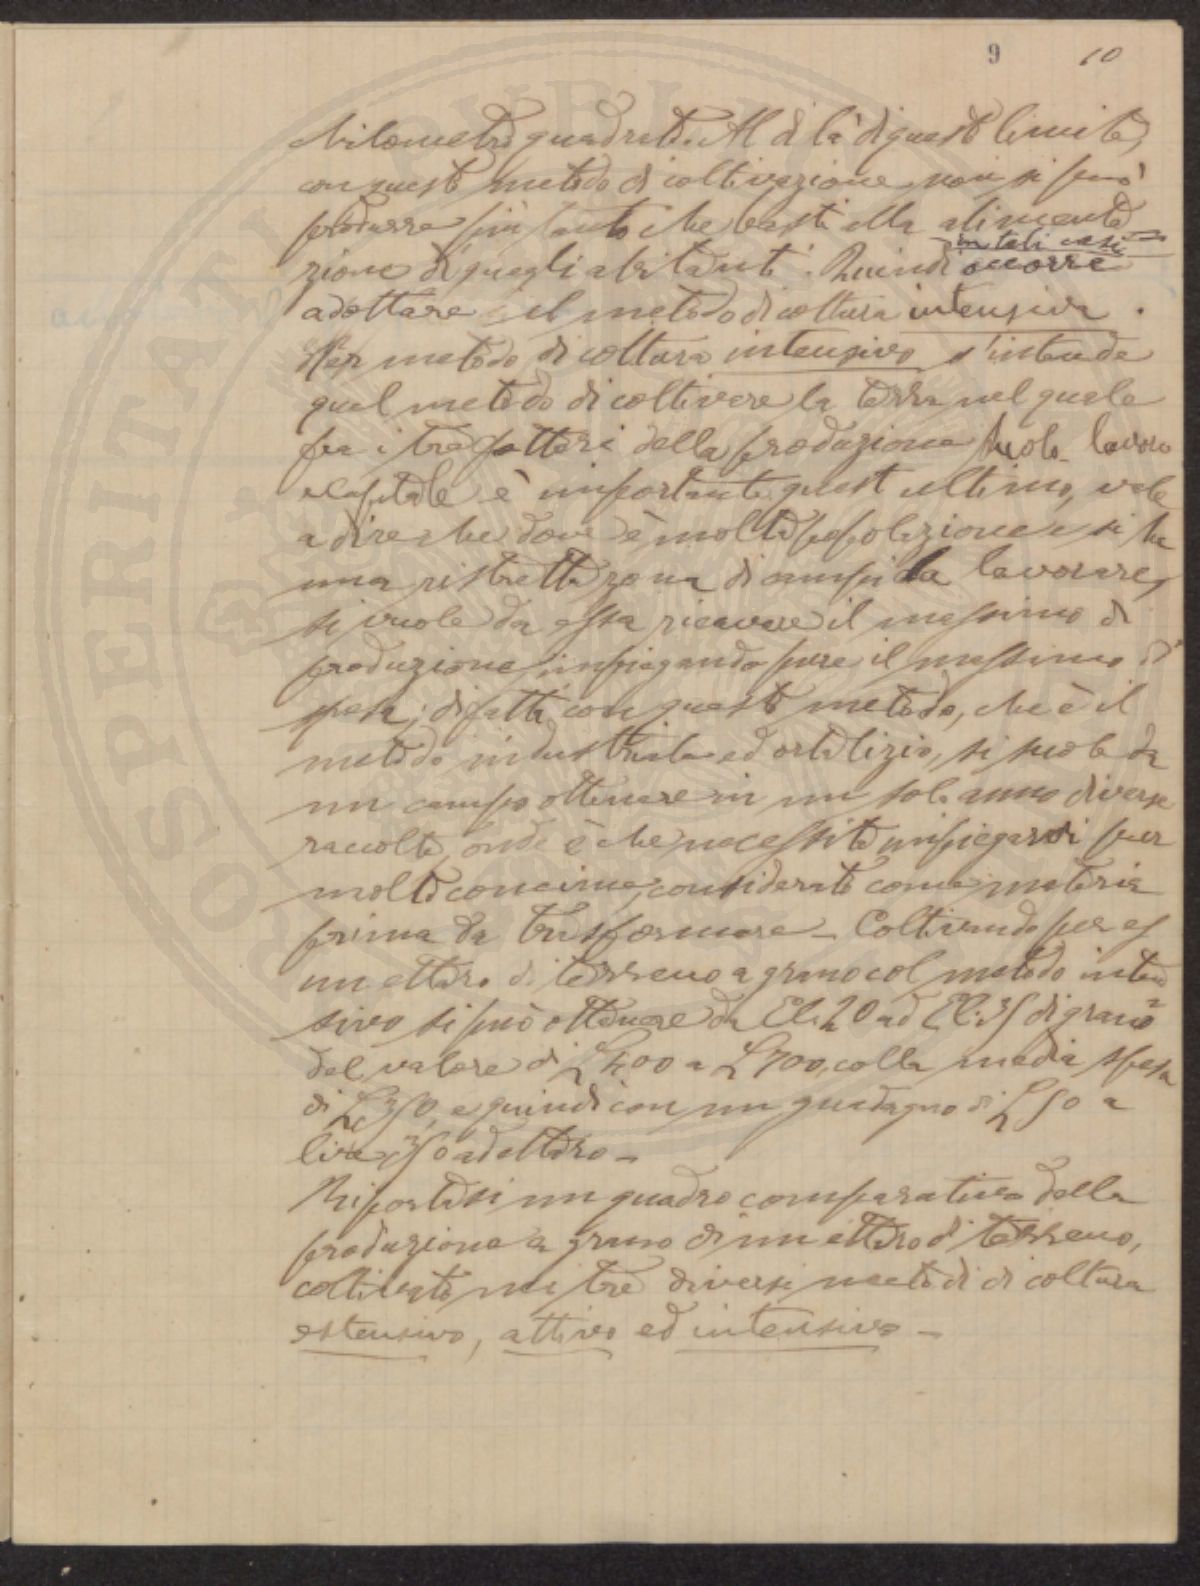 9 10
Kilometro quadrato. Al di là di questo limite,
con questo metodo di coltivazione non si può
produrre più tanto che basti alla alimenta
zione di quegli abitanti. Quindi in tali casi occorre
adottare il metodo di coltura intensiva.
Per metodo di coltura intensivo s'intende
quel metodo di coltivare la terra nel quale
fra i tre fattori della produzione suolo lavoro
e capitale è importante quest'ultimo, vale
a dire che dove è molta popolazione e si ha
una ristretta zona di campi da lavorare,
si vuole da essa ricavare il massimo di
produzione impiegando pure il massimo di
spesa; difatti con questo metodo, che è il
metodo industriale ed ortalizio, si suole da
un campo ottenere in un solo anno diverse
raccolte, onde è che necessita impiegarvi pur
molto concime, considerato come materia
prima da trasformare – Coltivando per es
un ettaro di terreno a grano col metodo inten
sivo si può ottenere da El. 20 ad El. 35 di grano
del valore di L 400 a L 700, colla media spesa
di L 350, e quindi con un guadagno di L 50 a
lire 350 ad ettaro –
Riportasi un quadro comparativo della
produzione a grano di un ettaro di terreno,
coltivato nei tre diversi metodi di coltura
estensivo, attivo ed intensivo –